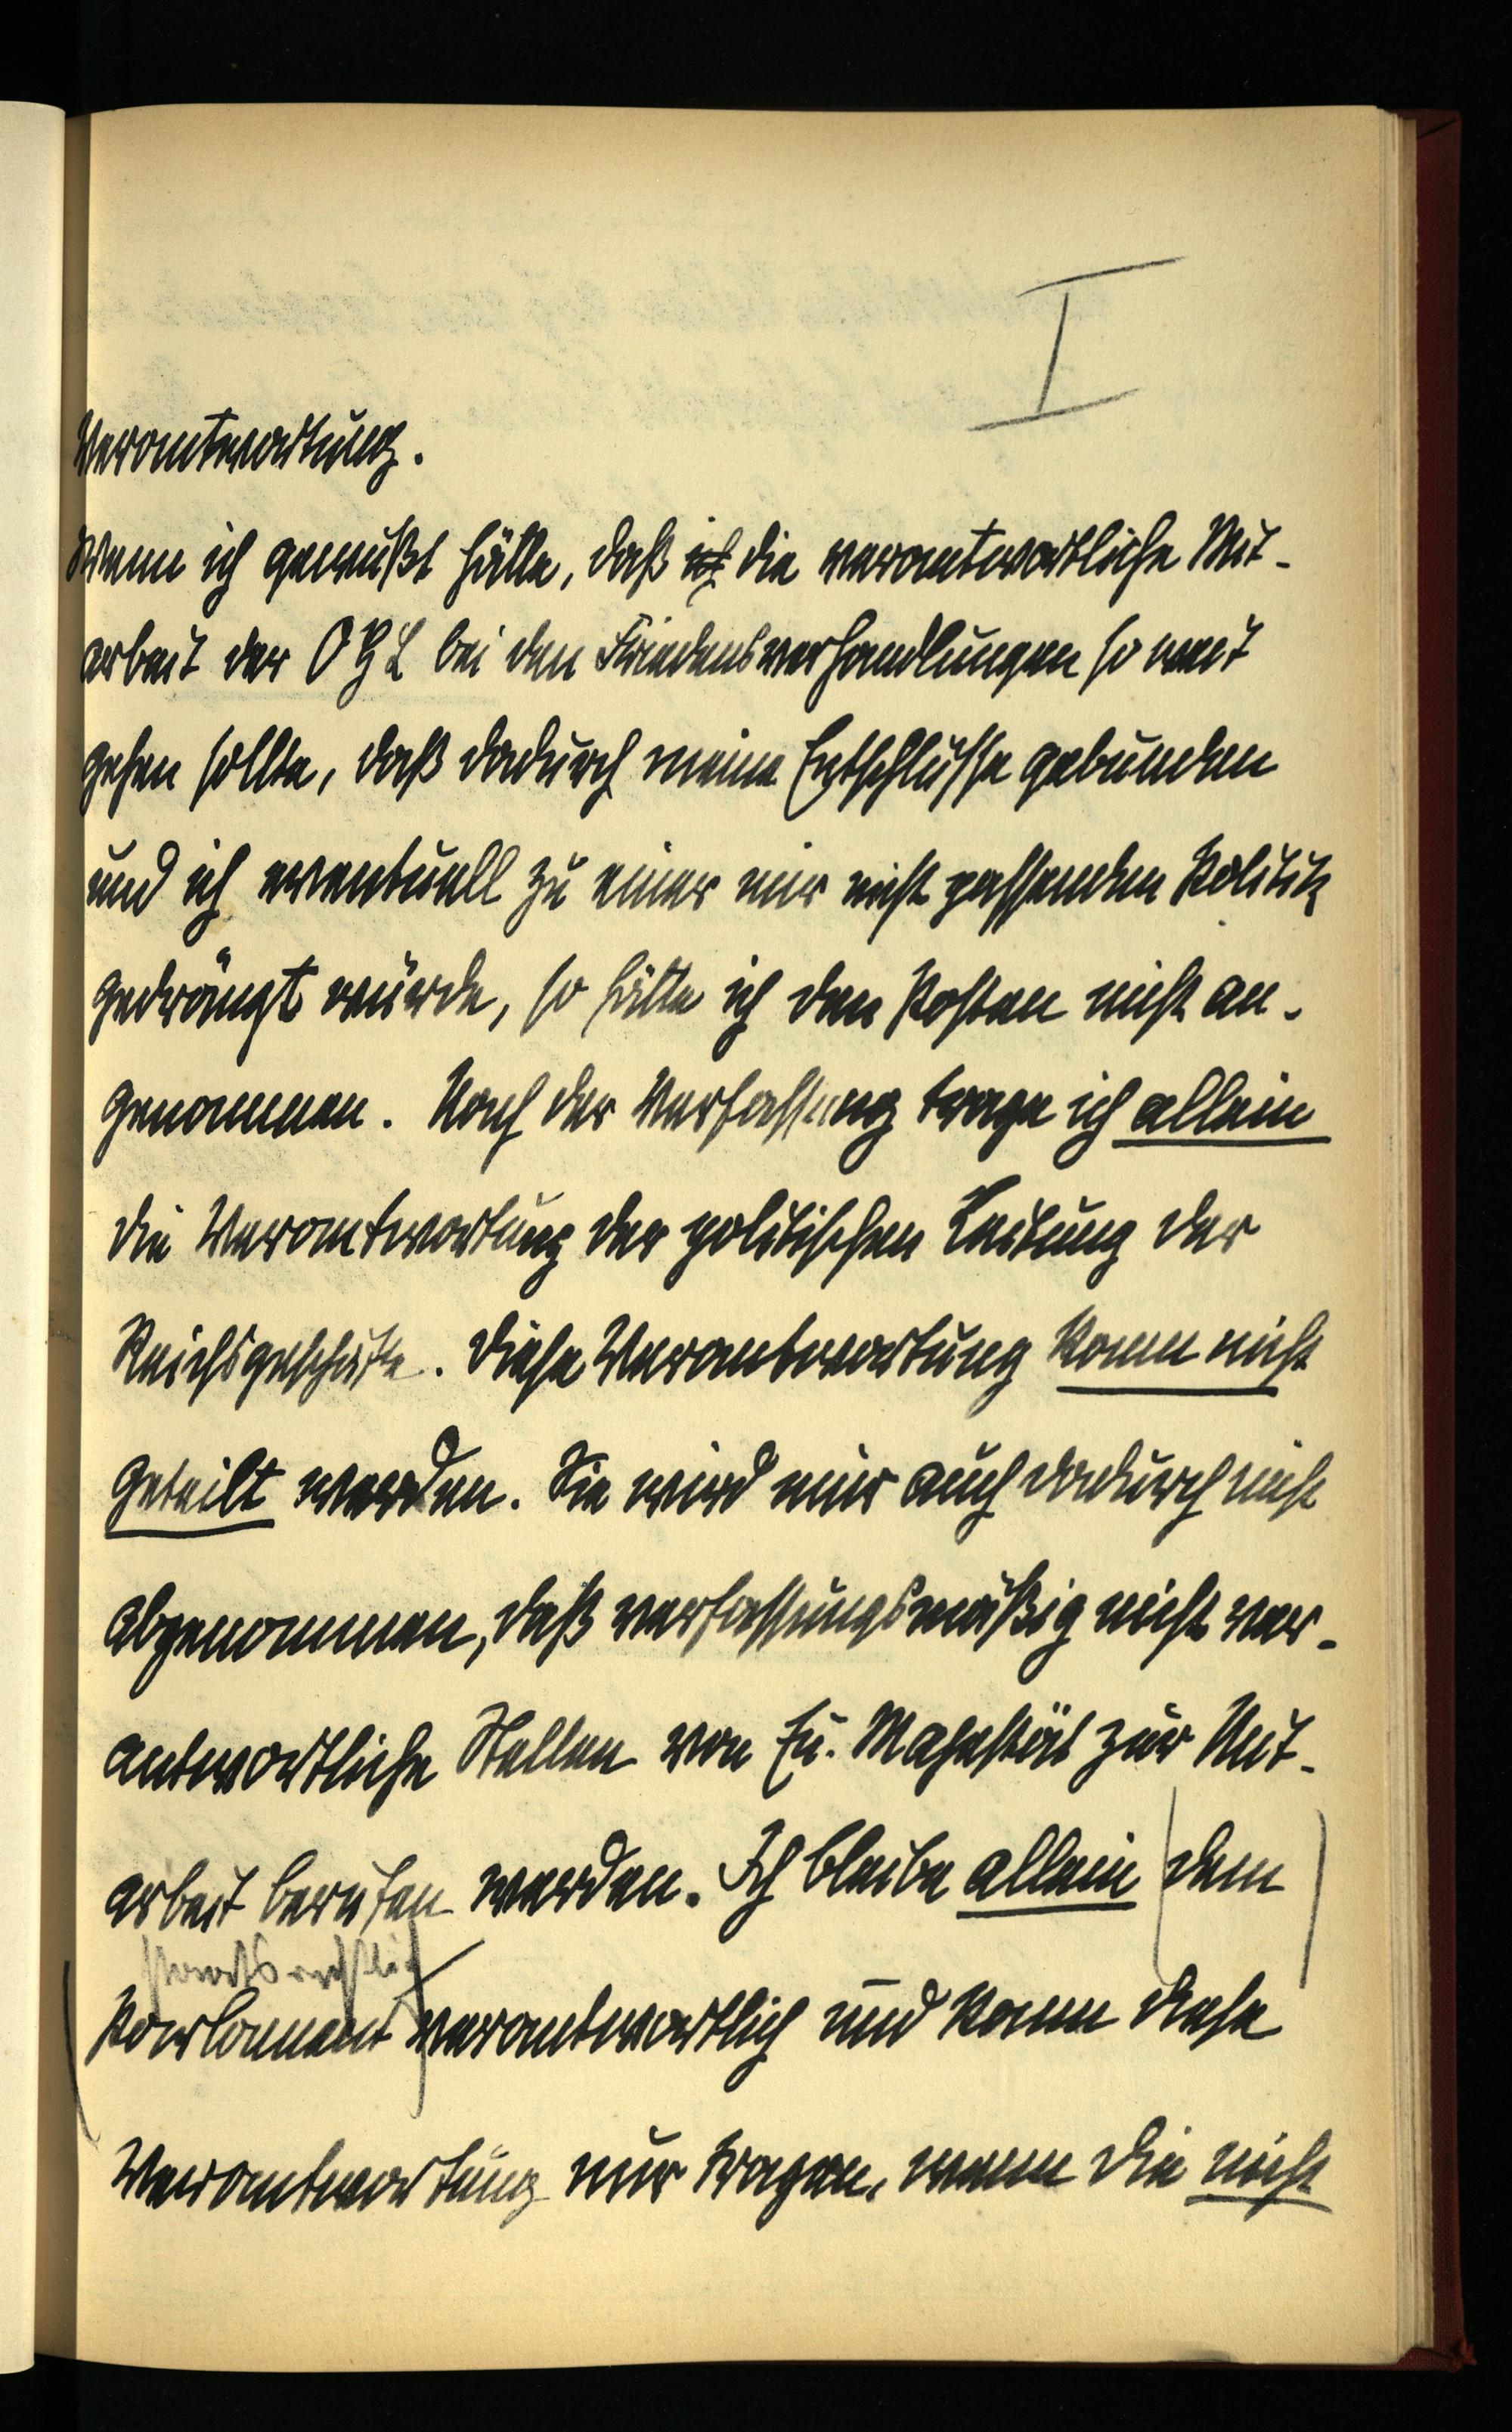 I
Verantwortung.
Wenn ich gewußt hätte, daß ich die verantwortliche Mit-
arbeit der OHL bei den Friedensverhandlungen so weit
gehen sollte, daß dadurch meine Entschlüsse gebunden
und ich eventuell zu einer mir nicht passenden Politik
gedrängt würde, so hätte ich den Posten nicht an-
genommen. Nach der Verfassung trage ich allein
die Verantwortung der politischen Leitung der
Reichsgeschäfte. Diese Verantwortung kann nicht
geteilt werden. Sie wird mir auch dadurch nicht
abgenommen, daß verfassungsmäßig nicht ver-
antwortliche Stellen von Eu. Majestät zur Mit-
arbeit berufen werden. Ich bleibe allein (dem)
staatsrechtlich
(Parlament) verantwortlich und kann diese
Verantwortung nur tragen, wenn die nicht